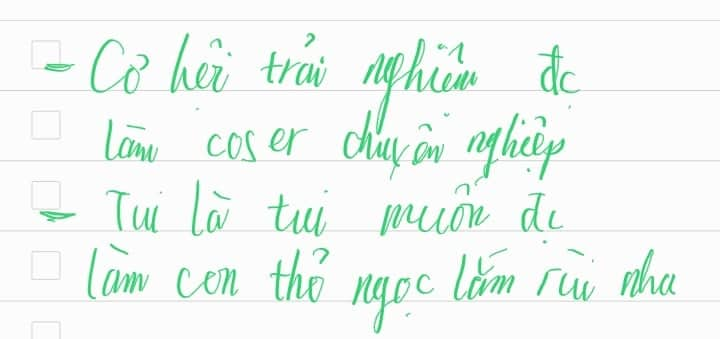 - Cơ hội trải nghiệm đc
làm coser chuyên nghiệp
- Tui là tui muốn đc
làm con thỏ ngọc lắm rùi nha